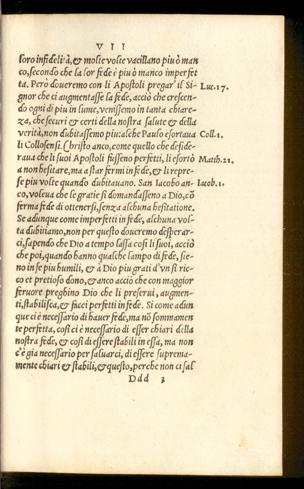 VII
loro infidelità, & molte volte vacillano piu ò man
co, secondo che la lor fede è piu ò manco imperfet
ta. Però doueremo con li Apostoli pregar' il Si-
gnor che ci augmentasse la fede, acciò che crescen- Luc. 17.
do ogni di piu in lume, venissemo in tanta chiarez-
za, che securi & certi della nostra salute & della
verità, non dubitassemo piu: alche Paulo esortaua Coll. 1.
li Collosensi. Christo anco, come quello che deside-
raua che li suoi Apostoli fussero perfetti, li esortò Matth. 21.
a non hesitare, ma a star fermi in fede, & li repre-
se piu volte quando dubitauano. San Iacobo an- Iacob. 1.
co, voleua che le gratie si domandasseno a Dio, cõ
ferma fede di ottenersi, senza alchuna hesitatione.
Se adunque come imperfetti in fede, alchuna vol-
ta dubitiamo, non per questo doueremo desperar-
ci, sapendo che Dio a tempo lassa cosi li suoi, acciò
che poi, quando hanno qualche lampo di fede, sie-
no in se piu humili, & a Dio piu grati d'vn si ric-
co et pretioso dono, & anco acciò che con maggior
feruore preghino Dio che li preserui, augmen-
ti, stabilisca, & facci perfetti in fede. Si come adun
que ci è necessario di hauer fede, ma nõ sommamen
te perfetta, cosi ci è necessario di esser chiari della
nostra fede, & cosi di essere stabili in essa, ma non
c'è gia necessario per saluarci, di essere suprema-
mente chiari & stabili, & questo, perche non ci sal
Ddd 3